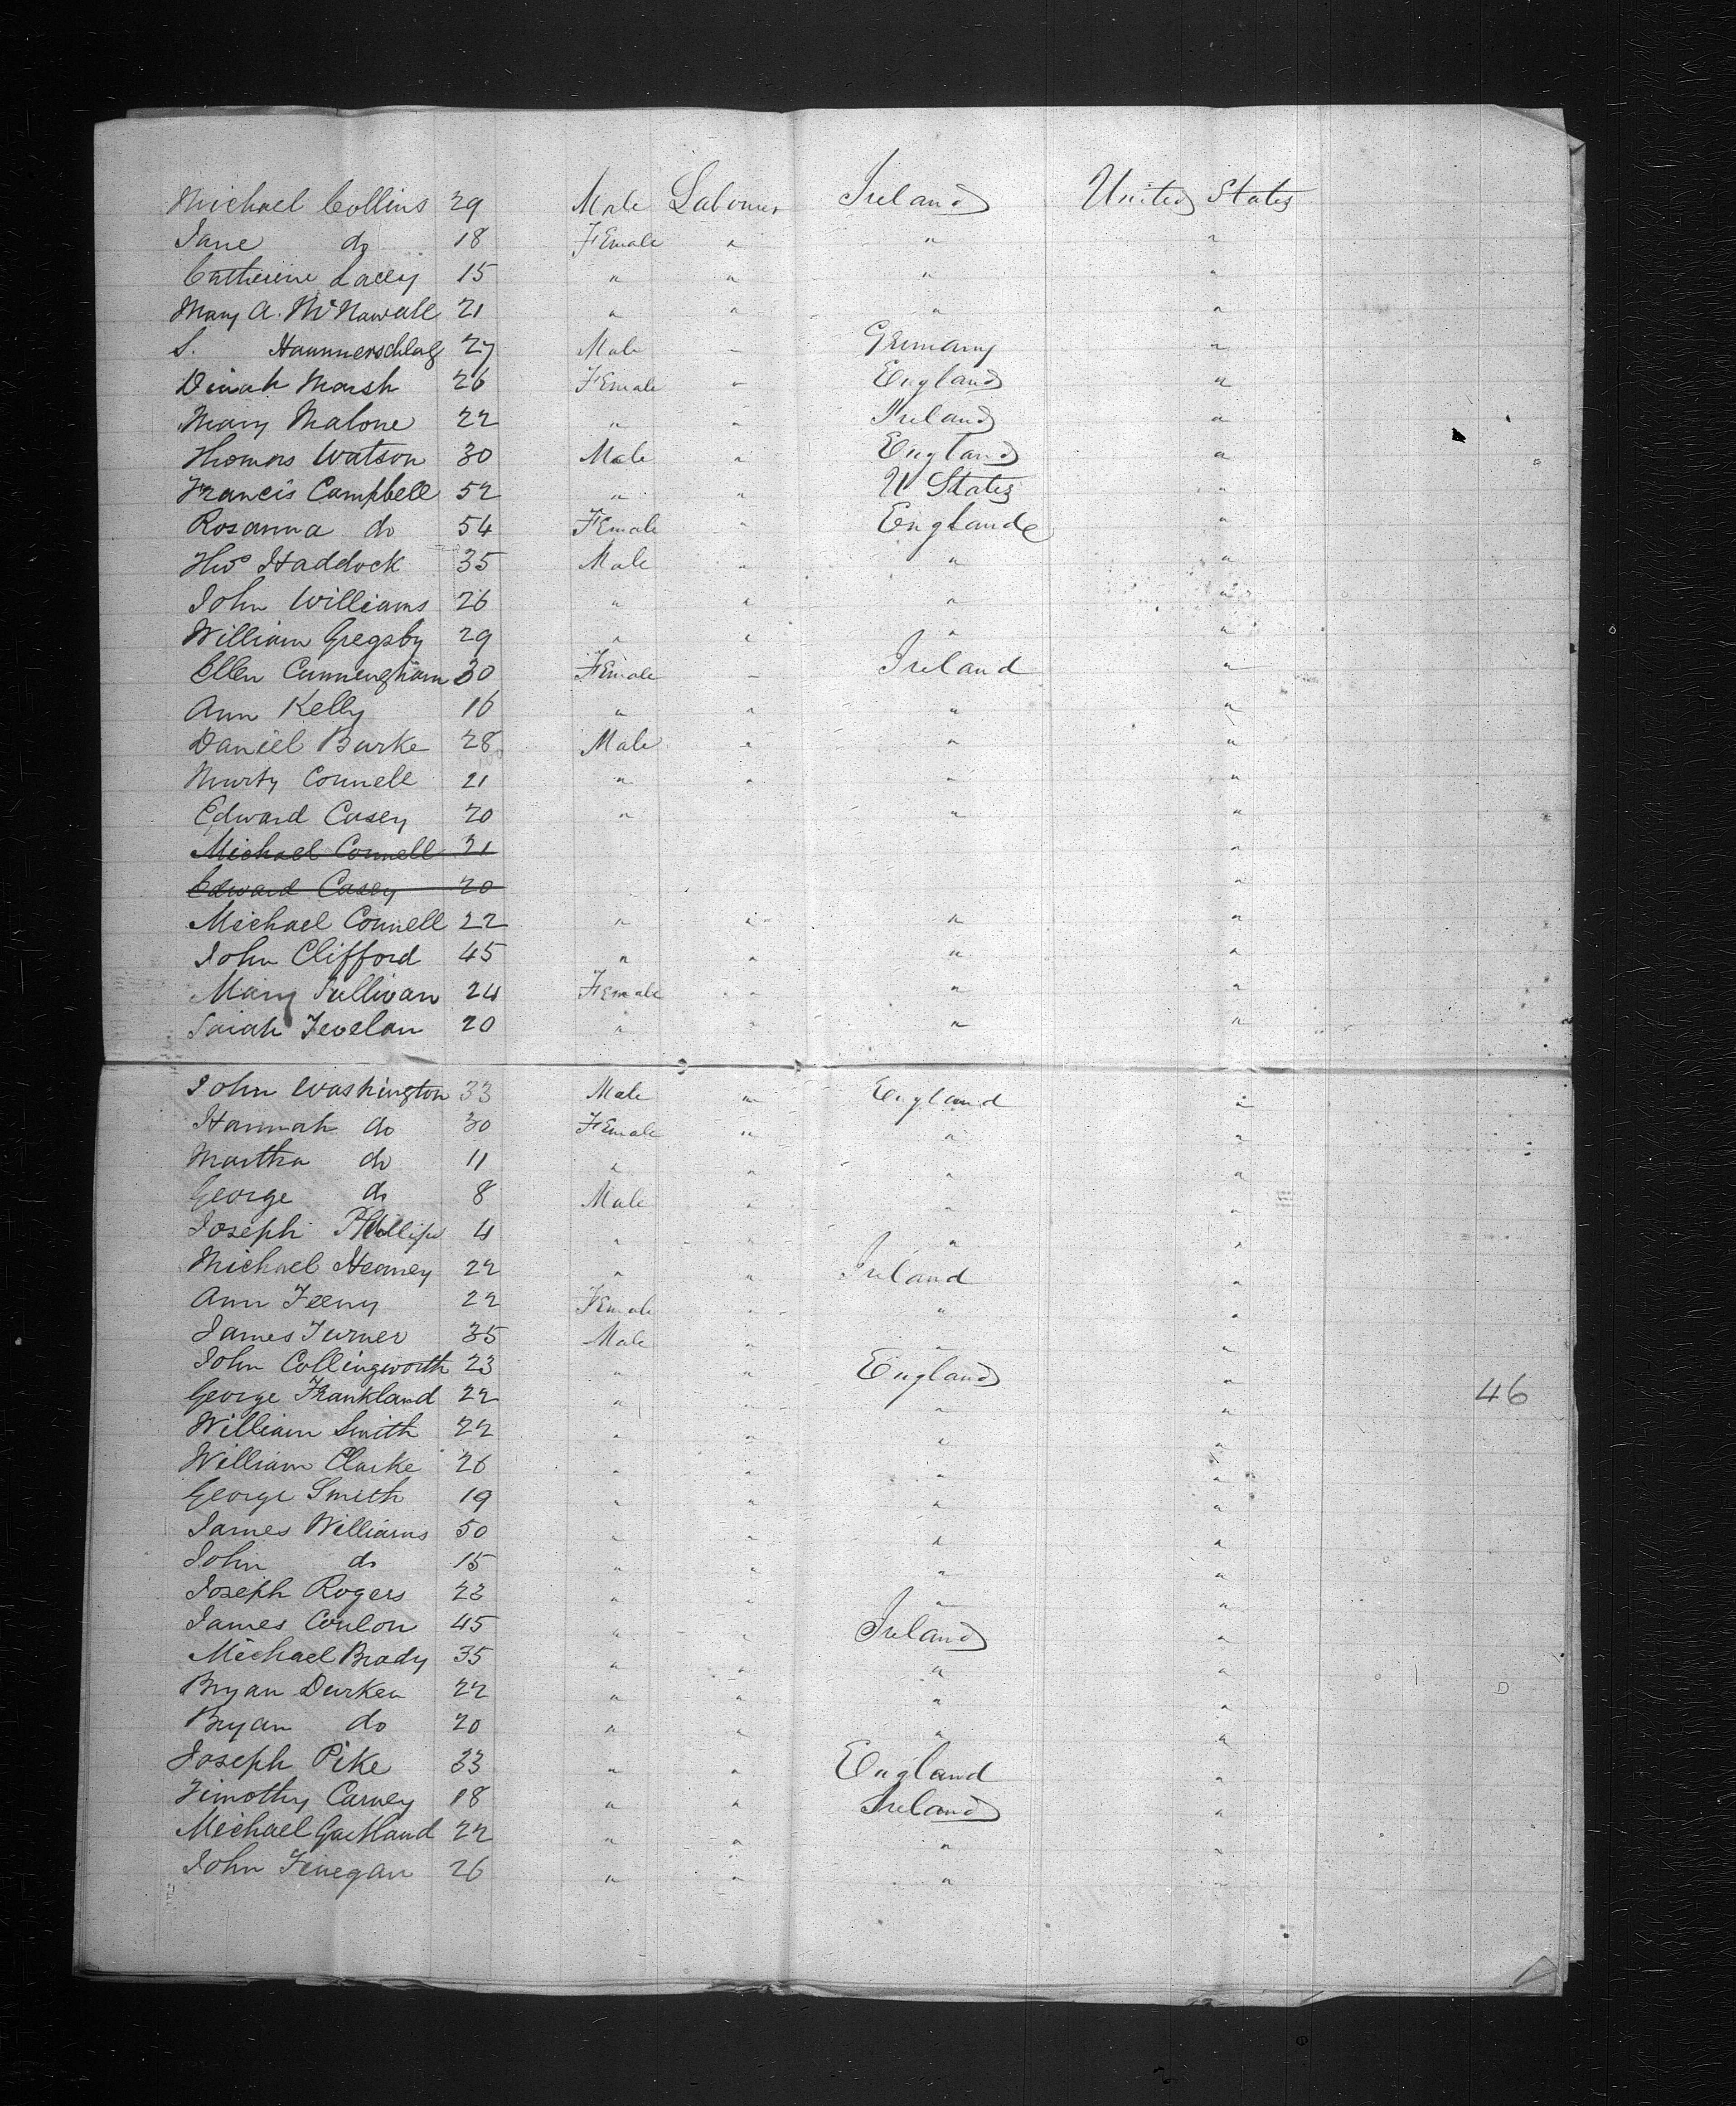 Michael Collins 29 Male Labourer Ireland United States
Jane do 18 Female " " "
Catherine Lacey 15 " " " "
Mary A. McNawall 21 " " " "
S. Hammerschlag 27 Male " Germany "
Dinah Marsh 26 Female " England "
Mary Malone 22 " " Ireland "
Thomas Watson 30 Male " England "
Francis Campbell 52 " " U States "
Rosanna do 54 Female " England "
Thos Haddock 35 Male " " "
John Williams 26 " " " "
William Gregsby 29 " " " "
Ellen Cunningham 30 Female " Ireland "
Ann Kelly 16 " " " "
Daniel Burke 28 Male " " "
Murty Connell 21 " " " "
Edward Casey 20 " " "
Michael Connell 21 "
Edward Casey 20 "
Michael Connell 22 " " " "
John Clifford 45 " " " "
Mary Sullivan 24 Female " " "
Sarah 20 " " " "
John Washington 33 Male " England "
Hannah do 30 Female " " "
Martha do 11 " " " "
George do 8 Male " " "
Joseph Phillips 4 " " " "
Michael Heaney 22 " " Ireland "
Ann Feeny 22 Female " " "
James Turner 35 Male " " "
John Collingworth 23 " " England "
George Frankland 22 " " " " 46
William Smith 22 " " " "
William Clarke 26 " " " "
George Smith 19 " " " "
James Williams 50 " " " "
John do 15 " " " "
Joseph Rogers 23 " " " "
James Conlon 45 " " Ireland "
Michael Brady 35 " " " "
Bryan Durken 22 " " " "
Bryan do 20 " " " "
Joseph Pike 33 " " England "
Timothy Carney 18 " " Ireland "
Michael Gartland 22 " " " "
John Finegan 26 " " " "